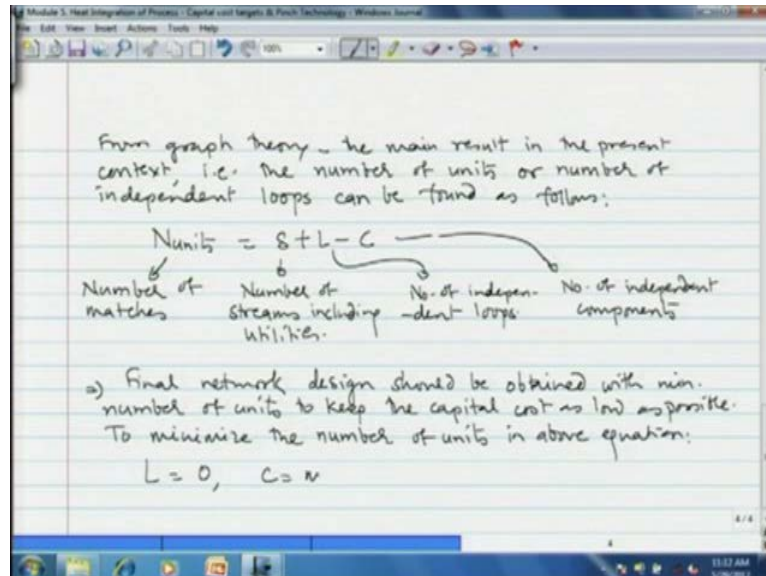 Module 5. Heat Integration of Process - Capital cost targets & Pinch Technology - Windows Journal
File Edit View Insert Actions Tools Help
100%
From graph theory - the main result in the present
context, i.e. the number of units or number of
independent loops can be found as follows:
Nunits = S + L - C
Number of matches
Number of streams including utilities.
No. of indepen-dent loops.
No. of independent components
=) Final network design should be obtained with min.
number of units to keep the capital cost as low as possible.
To minimize the number of units in above equation:
L = 0, C =
4/4
4
11:12 AM